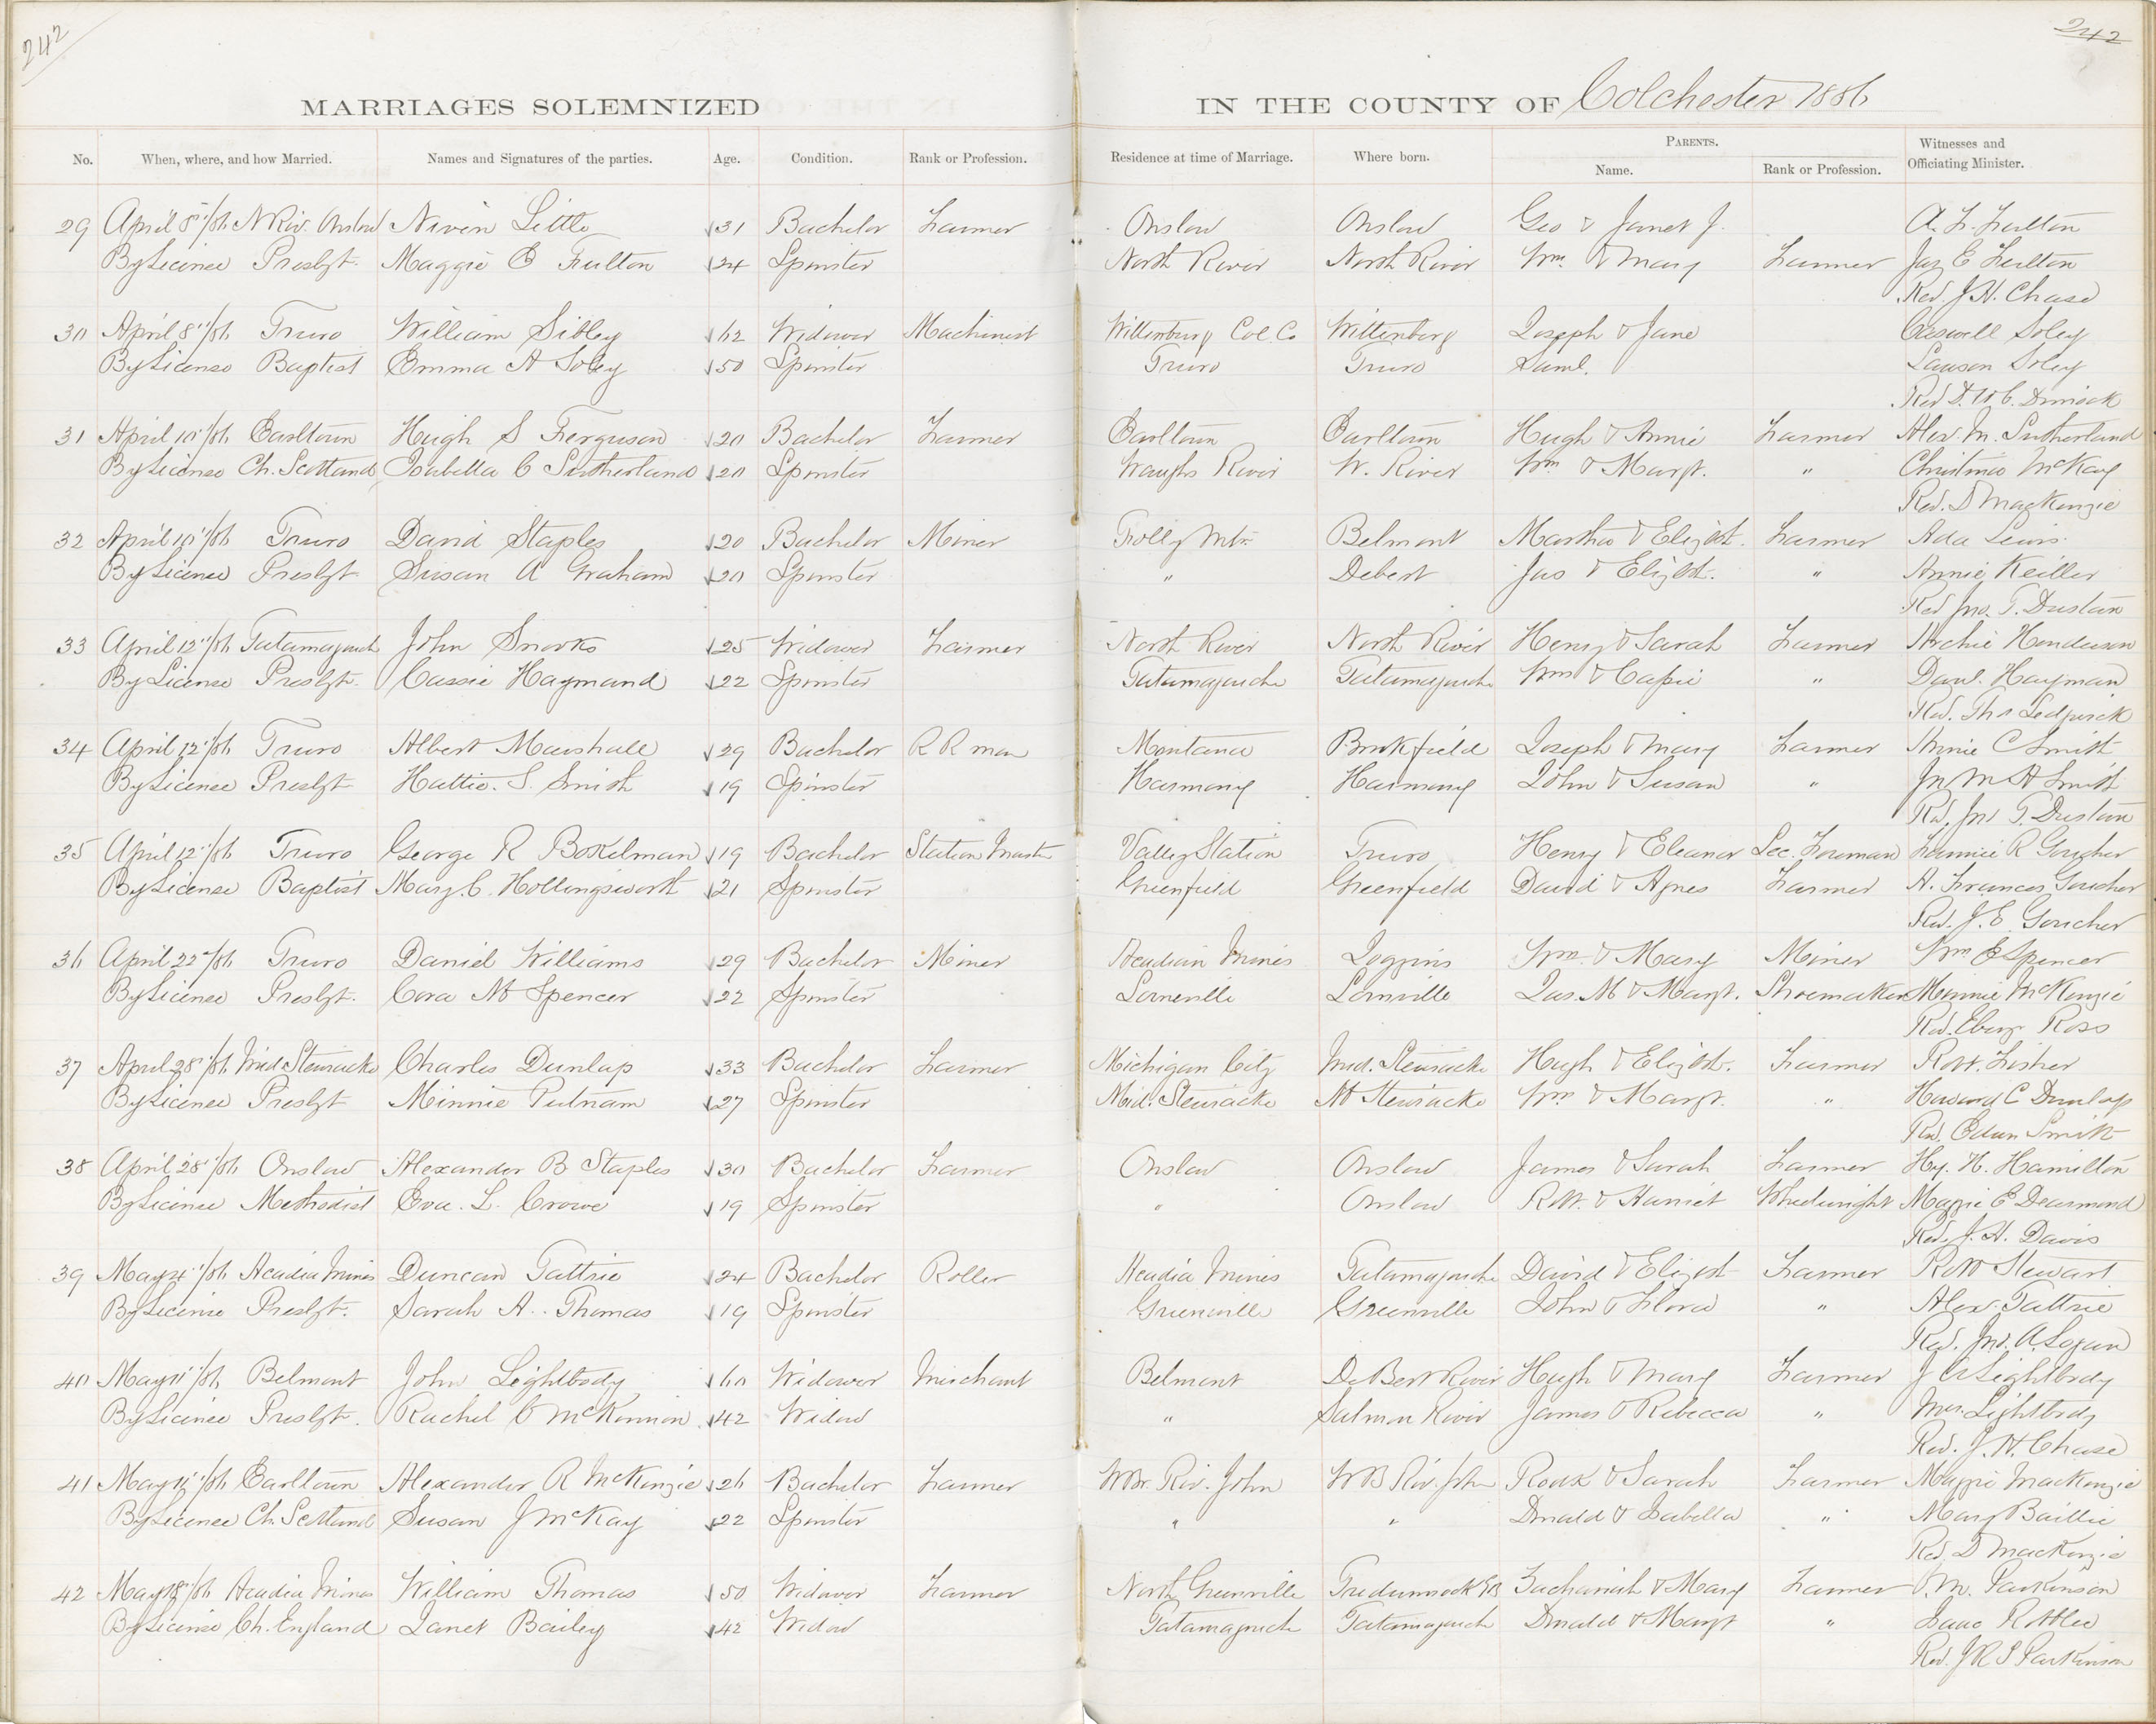 242
242
MARRIAGES SOLEMNIZED IN THE COUNTY OF Colchester 1886
No. When, where, and how Married. Names and Signatures of the parties. Age. Condition. Rank or Profession. Residence at time of Marriage. Where born. PARENTS. Name. Rank or Profession. Witnesses and Officiating Minister.
29 April 8"/86 N Riv. Onslow Nivin Little 31 Bachelor Farmer Onslow Onslow Geo & Janet J. A. F. Fulton
By Licence Presbyt. Maggie E Fulton 24 Spinster North River North River Wm. & Mary Farmer Jas E Fulton
Rev. J H. Chase
30 April 8"/86 Truro William Sibley 62 Widower Machinest Wittenburg Col. Co Wittenberg Joseph & Jane Caswell Soley
By License Baptist Emma A Soley 50 Spinster Truro Truro Saml. Lawson Soley
Rev D. W C. Dimock
31 April 10"/86 Earltown Hugh S Ferguson 20 Bachelor Farmer Earltown Earltown Hugh & Annie Farmer Alex. M. Sutherland
By License Ch. Scotland Isabella C Sutherland 20 Spinster Waughs River W. River Wm & Margt. " Christina McKay
Rev. D MacKenzie
32 April 10"/86 Truro David Staples 20 Bachelor Miner Folly Mtn Belmont Martha & Elizbt. Farmer Ada Lewis
By License Presbyt Susan A Graham 20 Spinster " Debert Jas & Elizbt. " Annie Keiller
Rev Jno. T. Dustan
33 April 12"/86 Tatamagouch John Snooks 25 Widower Farmer North River North River Henry & Sarah Farmer Archie Henderson
By License Presbyt. Cassie Haymand 22 Spinster Tatamagouche Tatamagouche Wm & Cassie " Danl. Hayman
Rev. Thos Sedgwick
34 April 12"/86 Truro Albert Marshall 29 Bachelor R R man Montana Brookfield Joseph & Mary Farmer Annie C Smith
By License Presbyt Hattie. S. Smith 19 Spinster Harmony Harmony John & Susan " Jn M A Smith
Rev. Jno T. Dustan
35 April 12"/86 Truro George R Bokelman 19 Bachelor Station Master Valley Station Truro Henry & Eleanor Sec. Foreman Fannie R Goucher
By License Baptist Mary. C. Hollingsworth 21 Spinster Greenfield Greenfield David & Agnes Farmer A. Frances Goucher
Rev. J. E. Goucher
36 April 22"/86 Truro Daniel Williams 29 Bachelor Miner Acadian Mines Joggins Wm. & Mary Miner Wm E Spencer
By License Presbyt. Cora M Spencer 22 Spinster Lorneville Lornville Jas. M & Margt. Shoemaker Minnie McKenzie
Rev. Ebenz Ross
37 April 28"/86 Mid Stewiacke Charles Dunlap 33 Bachelor Farmer Michigan City Mid. Stewiacke Hugh & Elizbt. Farmer Robt. Fisher
By License Presbyt Minnie Putnam 27 Spinster Mid. Stewiacke M Stewiacke Wm & Margt. " Howard C Dunlap
Rev. Edwn Smith
38 April 28"/86 Onslow Alexander B Staples 30 Bachelor Farmer Onslow Onslow James & Sarah Farmer Hy. H. Hamilton
By License Methodist Eva. L. Crowe 19 Spinster " Onslow Robt. & Harriet Wheelwright Maggie E Dearmond
Rev. J. A. Davis
39 May 4"/86 Acadia Mines Duncan Tattrie 24 Bachelor Roller Acadia Mines Tatamagouche David & Elizbt Farmer Robt Stewart
By License Presbyt. Sarah A. Thomas 19 Spinster Greenville Greenville John & Flora " Alex. Tattrie
Rev. Jno. A. Logan
40 May 11"/86 Belmont John Lightbody 60 Widower Merchant Belmont De Bert River Hugh & Mary Farmer J A Lightbody
By License Presbyt. Rachel C McKinnon 42 Widow " Salmon River James & Rebecca " Mrs. Lightbody
Rev. J. H. Chase
41 May /86 Earltown Alexander R McKenzie 26 Bachelor Farmer W Br. Riv. John W B Riv. John Roax & Sarah Farmer Maggie MacKenzie
By License Ch. Scotland Susan J McKay 22 Spinster " " Donald & Isabella " Mary Baillie
Rev. D MacKenzie
42 May 18"/86 Acadia Mines William Thomas 50 Widower Farmer North Greenville Zachariah & Mary Farmer M. Parkinson
By License Ch. England Janet Bailey 42 Widow Tatamagouche Tatamagouche Donald & Margt " Isaac
Rev. J R S Parkinson